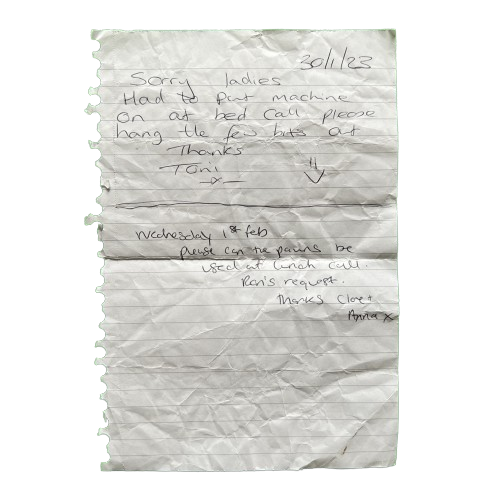 30/1/23
Sorry ladies
Had to put machine
on at bed call please
hang the few bits out
Thanks
Toni
x
Wednesday 1st feb
please can the prawns be
used at lunch call.
Ron's request.
Thanks
Anna x